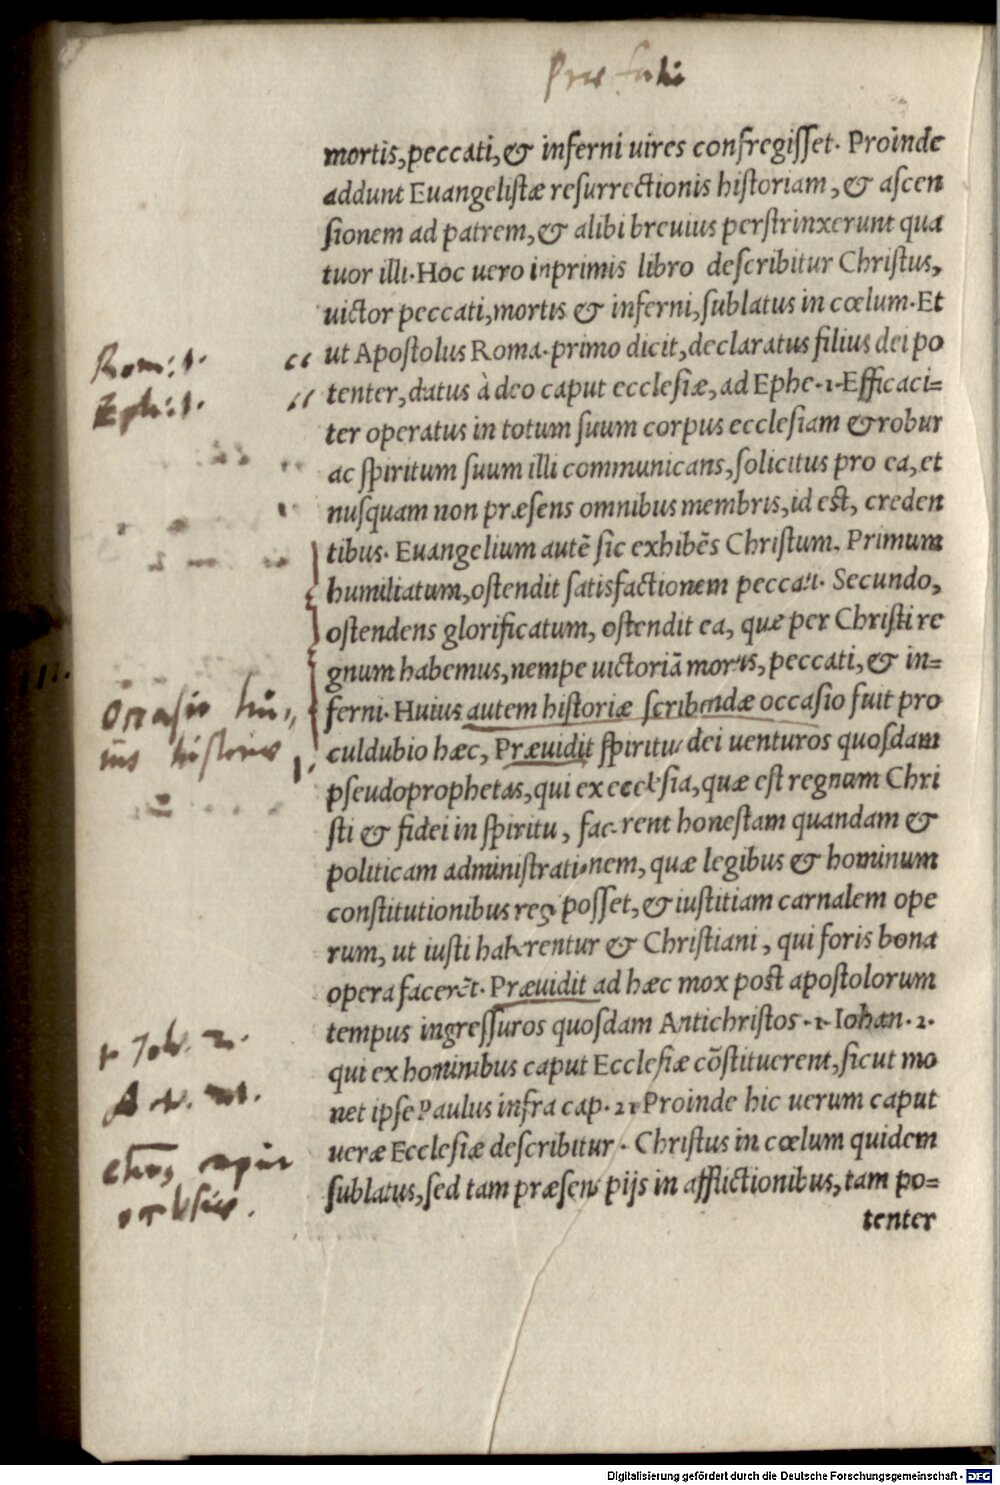 Præfatio
mortis, peccati, & inferni uires confregisset. Proinde
addunt Euangelistæ resurrectionis historiam, & ascen
sionem ad patrem, & alibi breuius perstrinxerunt qua
tuor illi. Hoc uero inprimis libro describitur Christus,
uictor peccati, mortis & inferni, sublatus in cœlum. Et
Rom: 1.
ut Apostolus Roma. primo dicit, declaratus filius dei po
Eph: 1.
tenter, datus à deo caput ecclesiæ, ad Ephe. 1. Efficaci=
ter operatus in totum suum corpus ecclesiam & robur
ac spiritum suum illi communicans, solicitus pro ea, et
nusquam non præsens omnibus membris, id est, creden
tibus. Euangelium autē sic exhibēs Christum. Primum
humiliatum, ostendit satisfactionem peccati. Secundo,
ostendens glorificatum, ostendit ea, quæ per Christi re
gnum habemus, nempe uictoriā mortis, peccati, & in=
Occasio hu,,
ferni. Huius autem historiæ scribendæ occasio fuit pro
ius historiæ
culdubio hæc, Præuidit spiritus dei uenturos quosdam
pseudoprophetas, qui ex ecclesia, quæ est regnum Chri
sti & fidei in spiritu, facerent honestam quandam &
politicam administrationem, quæ legibus & hominum
constitutionibus regi posset, & iustitiam carnalem ope
rum, ut iusti haberentur & Christiani, qui foris bona
opera facerēt. Præuidit ad hæc mox post apostolorum
1 Ioh. 2.
tempus ingressuros quosdam Antichristos. 1. Iohan. 2.
qui ex hominibus caput Ecclesiæ cōstituerent, sicut mo
net ipse Paulus infra cap. 21. Proinde hic uerum caput
ueræ Ecclesiæ describitur. Christus in cœlum quidem
sublatus, sed tam præsens pijs in afflictionibus, tam po=
tenter
Digitalisierung gefördert durch die Deutsche Forschungsgemeinschaft - DFG